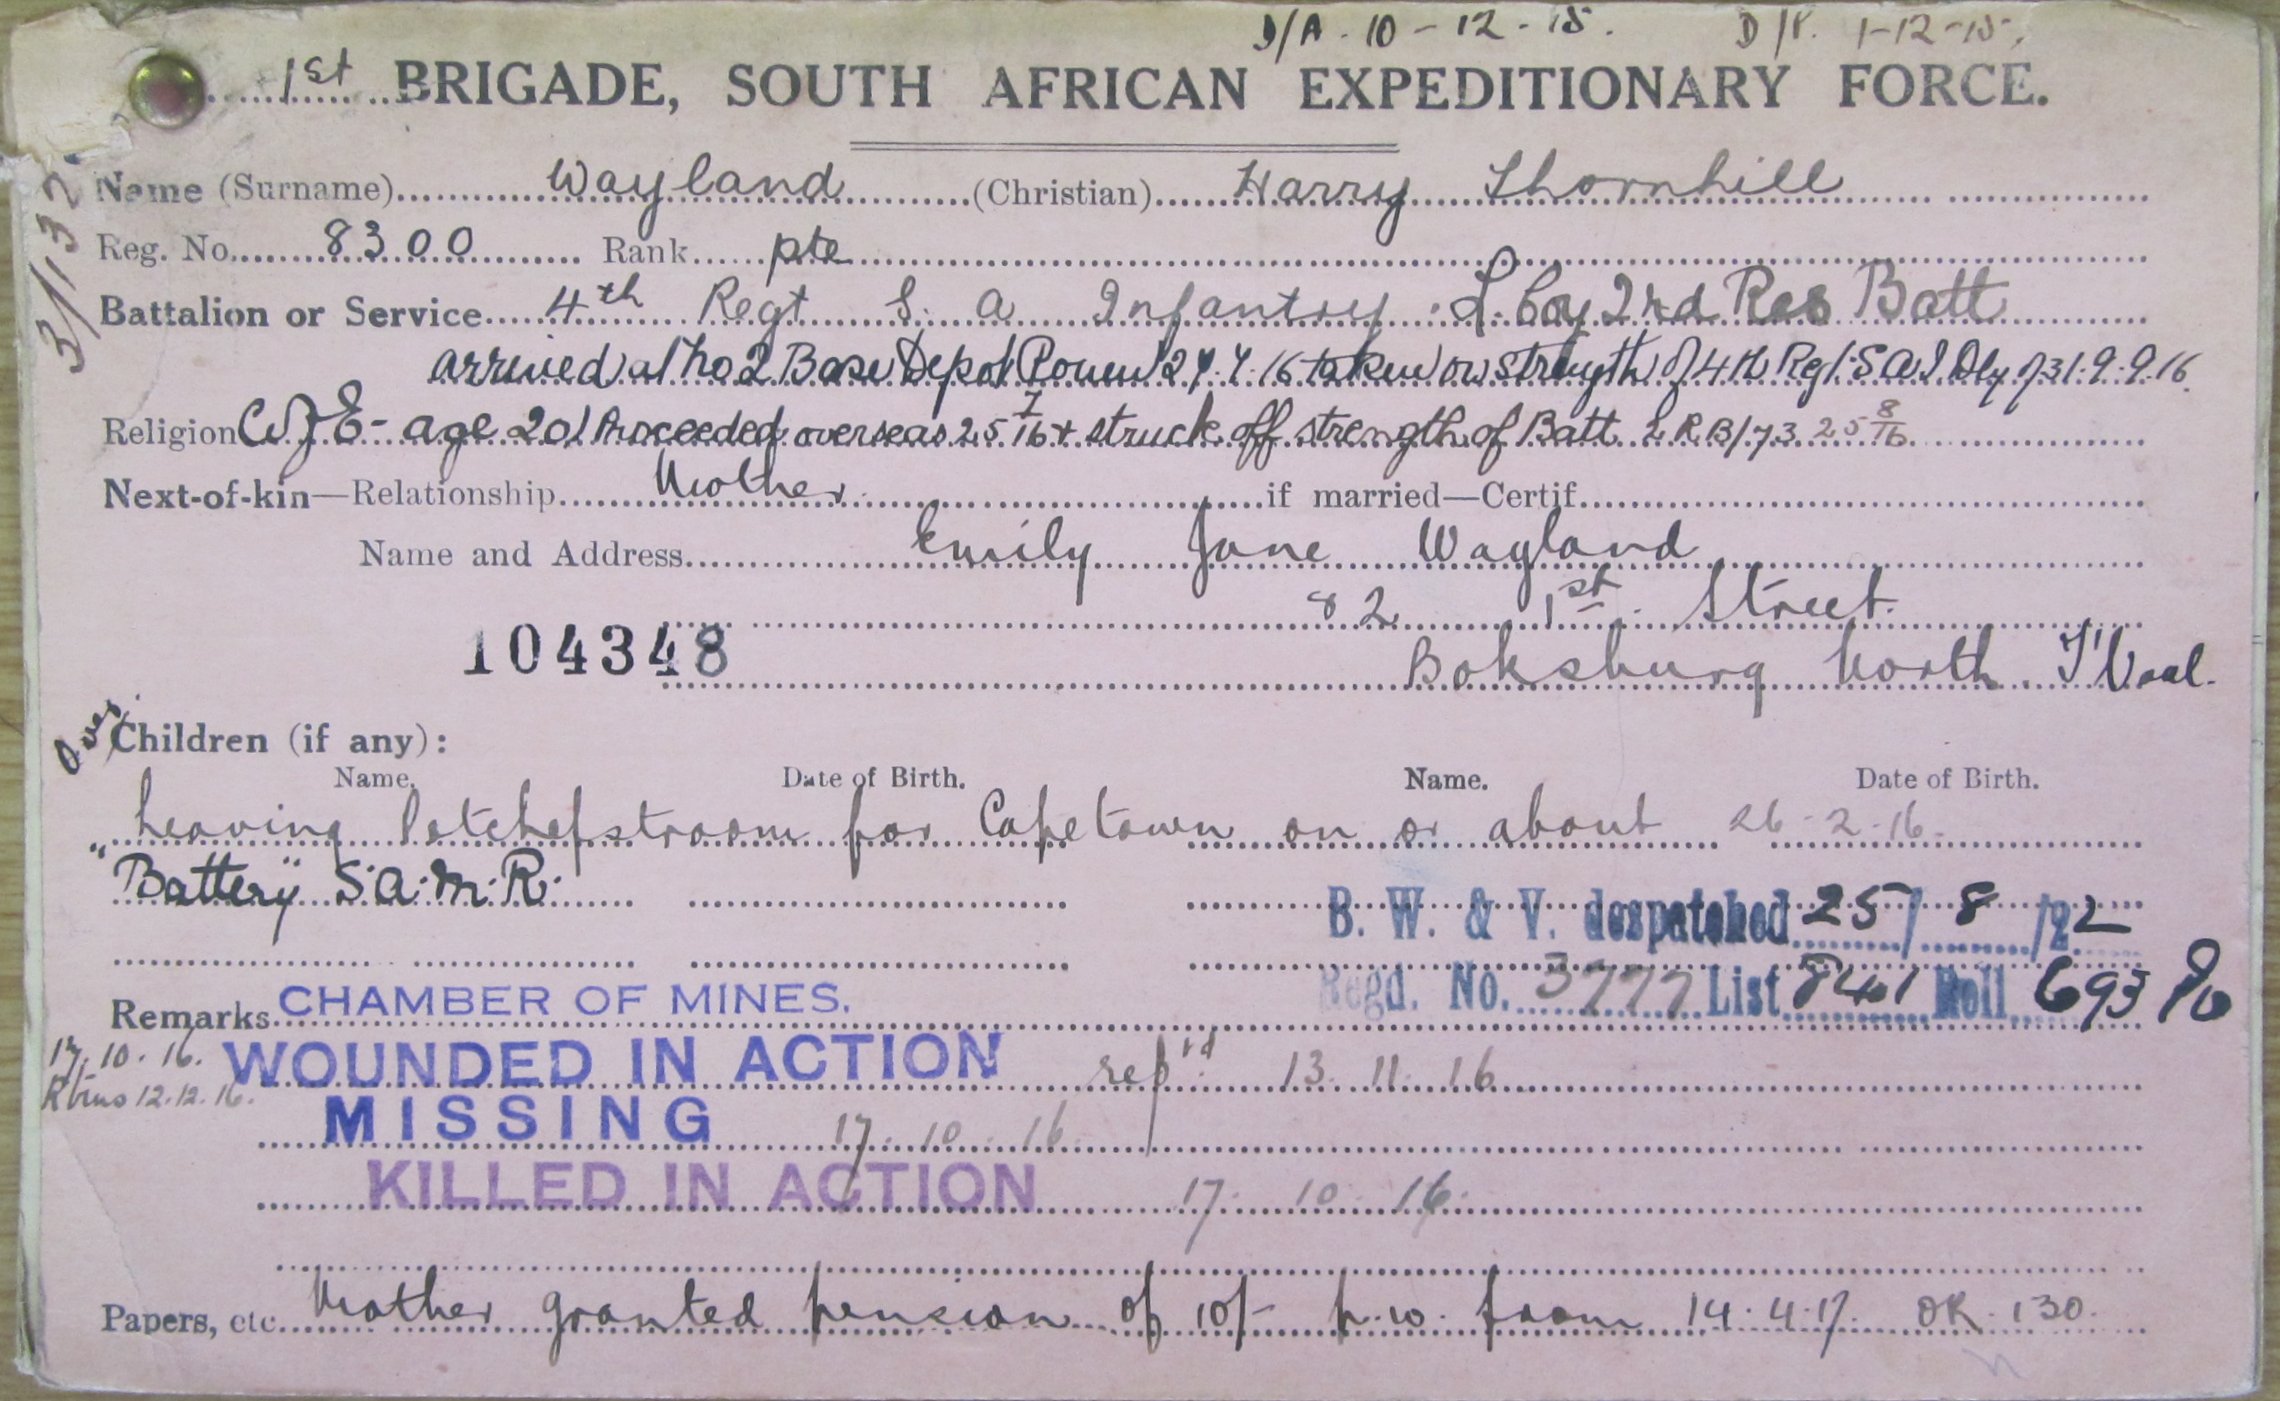 D/A. 10-12-15. D/P. 1-12-15.
1st BRIGADE, SOUTH AFRICAN EXPEDITIONARY FORCE.
3/132
Name (Surname) Wayland (Christian) Harry Thornhill
Reg. No. 8300 Rank pte
Battalion or Service 4th Regt S. A Infantry. Coy 2nd Res Batt
arrived at No 2 Base Depot Rouen 27.7.16 taken on strength of 4th Regt. S A I Dly 31. 9.9.16.
Religion C of E - age 20 / Proceeded overseas 25 7/16 & struck off strength of Batt 2 R B/73 25 8/16
Next-of-kin—Relationship Mother if married—Certif.
Name and Address Emily Jane Wayland
82 1st Street.
104348 Boksburg North T'Vaal.
Over.
Children (if any):
Name. Date of Birth. Name. Date of Birth.
Leaving Potchefstroom for Capetown on or about 26-2-16.
"Battery" S.A.M.R.
B. W. & V. despatched 25/8/22
Regd. No. 3777 List 841 Roll 693
Remarks CHAMBER OF MINES.
17.10.16. WOUNDED IN ACTION rep'd 13.11.16
12.12.16.
MISSING 17.10.16.
KILLED IN ACTION 17.10.16.
Papers, etc. Mother granted pension of 10/- p.w. from 14.4.17. OR.130.